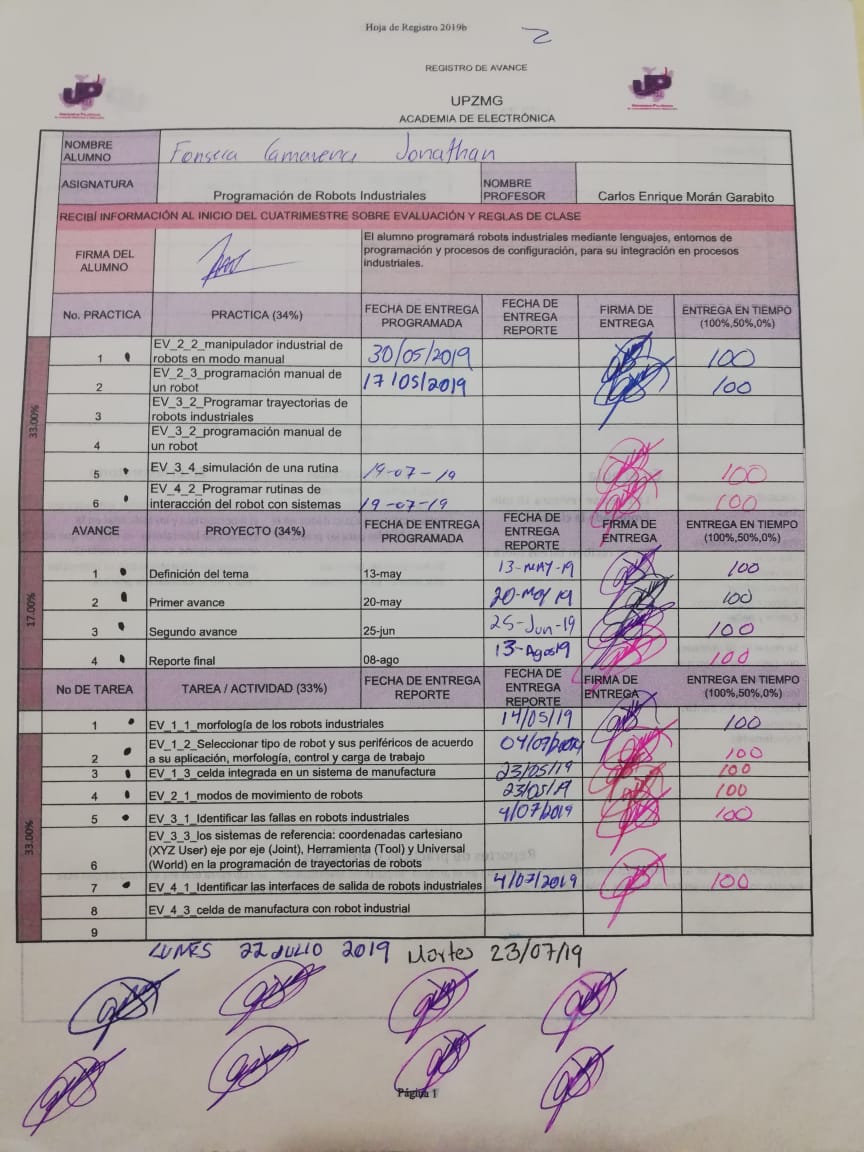 Hoja de Registro 2019b
2
REGISTRO DE AVANCE
UPZMG
ACADEMIA DE ELECTRÓNICA
NOMBRE ALUMNO Fonseca Camarena Jonathan
ASIGNATURA Programación de Robots Industriales NOMBRE PROFESOR Carlos Enrique Morán Garabito
RECIBÍ INFORMACIÓN AL INICIO DEL CUATRIMESTRE SOBRE EVALUACIÓN Y REGLAS DE CLASE
FIRMA DEL ALUMNO
El alumno programará robots industriales mediante lenguajes, entornos de
programación y procesos de configuración, para su integración en procesos
industriales.
No. PRACTICA PRACTICA (34%) FECHA DE ENTREGA PROGRAMADA FECHA DE ENTREGA REPORTE FIRMA DE ENTREGA ENTREGA EN TIEMPO (100%,50%,0%)
33.00%
1 EV_2_2_manipulador industrial de robots en modo manual 30/05/2019 100
2 EV_2_3_programación manual de un robot 17/05/2019 100
3 EV_3_2_Programar trayectorias de robots industriales
4 EV_3_2_programación manual de un robot
5 EV_3_4_simulación de una rutina 19-07-19 100
6 EV_4_2_Programar rutinas de interacción del robot con sistemas 19-07-19 100
AVANCE PROYECTO (34%) FECHA DE ENTREGA PROGRAMADA FECHA DE ENTREGA REPORTE FIRMA DE ENTREGA ENTREGA EN TIEMPO (100%,50%,0%)
17.00%
1 Definición del tema 13-may 13-MAY-19 100
2 Primer avance 20-may 20-May 19 100
3 Segundo avance 25-jun 25-Jun-19 100
4 Reporte final 08-ago 13-Ago19 100
No DE TAREA TAREA / ACTIVIDAD (33%) FECHA DE ENTREGA REPORTE FECHA DE ENTREGA REPORTE FIRMA DE ENTREGA ENTREGA EN TIEMPO (100%,50%,0%)
33.00%
1 EV_1_1_morfología de los robots industriales 14/05/19 100
2 EV_1_2_Seleccionar tipo de robot y sus periféricos de acuerdo a su aplicación, morfología, control y carga de trabajo 04/07/2019 100
3 EV_1_3_celda integrada en un sistema de manufactura 23/05/19 100
4 EV_2_1_modos de movimiento de robots 23/05/19 100
5 EV_3_1_Identificar las fallas en robots industriales 4/07/2019 100
6 EV_3_3_los sistemas de referencia: coordenadas cartesiano (XYZ User) eje por eje (Joint), Herramienta (Tool) y Universal (World) en la programación de trayectorias de robots
7 EV_4_1_Identificar las interfaces de salida de robots industriales 4/07/2019 100
8 EV_4_3_celda de manufactura con robot industrial
9
LUNES 22 JULIO 2019 Martes 23/07/19
Página 1